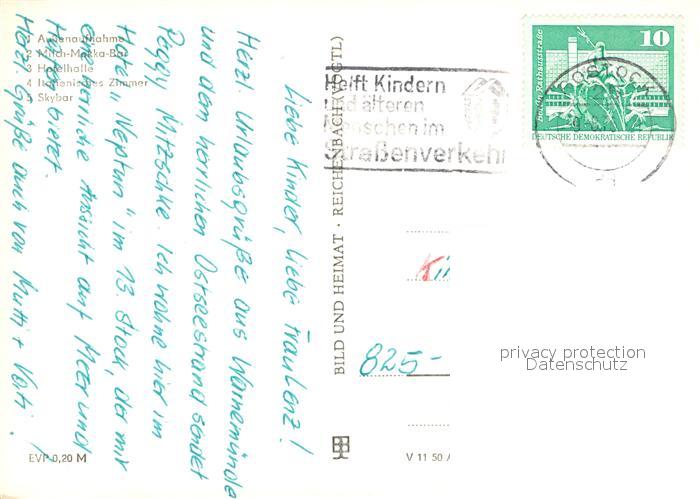 1 Außenaufnahme
2 Milch-Mokka-Bar
3 Hotelhalle
4 Italienisches Zimmer
5 Skybar
Liebe Kinder, liebe Frau Lenz!
Herzl. Urlaubsgrüße aus Warnemünde
und dem herrlichen Ostseestrand sendet
Peggy Mitzschke. Ich wohne hier im
Hotel „Neptun" im 13. Stock, der mir
eine herrliche Ansicht auf Meer und
bietet.
Herzl. Grüße auch von Mutti + Vati!
EVP 0,20 M
BILD UND HEIMAT · REICHENBACH (VOGTL)
V 11 50
Helft Kindern
und älteren
Menschen im
Straßenverkehr
Berlin, Rathausstraße
10
DEUTSCHE DEMOKRATISCHE REPUBLIK
ROSTOCK
825-
privacy protection
Datenschutz